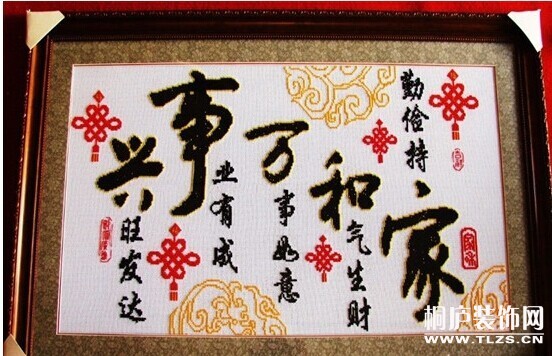 勤俭持家
和气生财
万事如意
事业有成
兴旺发达
桐庐装饰网
WWW.TLZS.CN